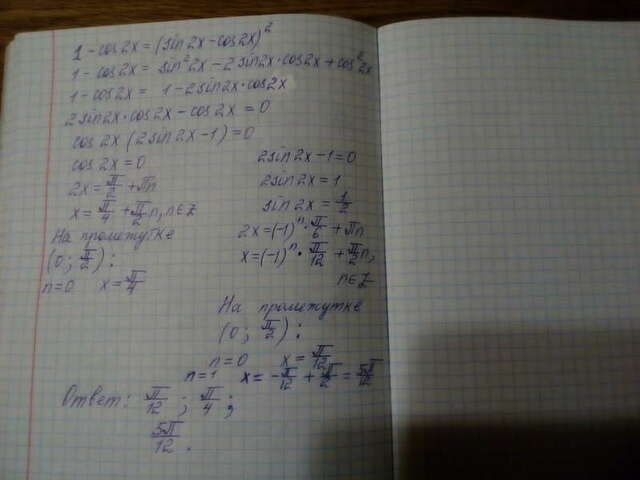 1 - cos2x = (sin2x - cos2x)²
1 - cos2x = sin²2x - 2sin2x·cos2x + cos²2x
1 - cos2x = 1 - 2sin2x·cos2x
2sin2x·cos2x - cos2x = 0
cos2x(2sin2x - 1) = 0
cos2x = 0
2x = π/2 + πn
x = π/4 + π/2 n, n∈Z
На промежутке
(0; π/2):
n=0 x = π/4
2sin2x - 1 = 0
2sin2x = 1
sin2x = 1/2
2x = (-1)ⁿ · π/6 + πn
x = (-1)ⁿ · π/12 + π/2 n,
n∈Z
На промежутке
(0; π/2):
n=0 x = π/12
n=1 x = -π/12 + π/2 = 5π/12
Ответ: π/12 ; π/4 ;
5π/12 .